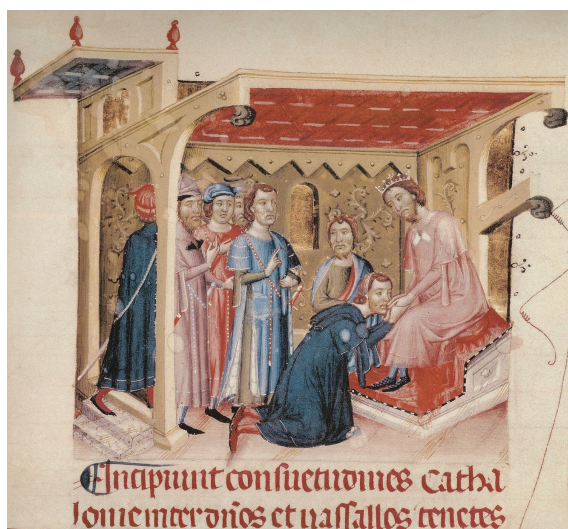 Incipiunt consuetudines Catha
lonie inter dños et uassallos tenẽtes